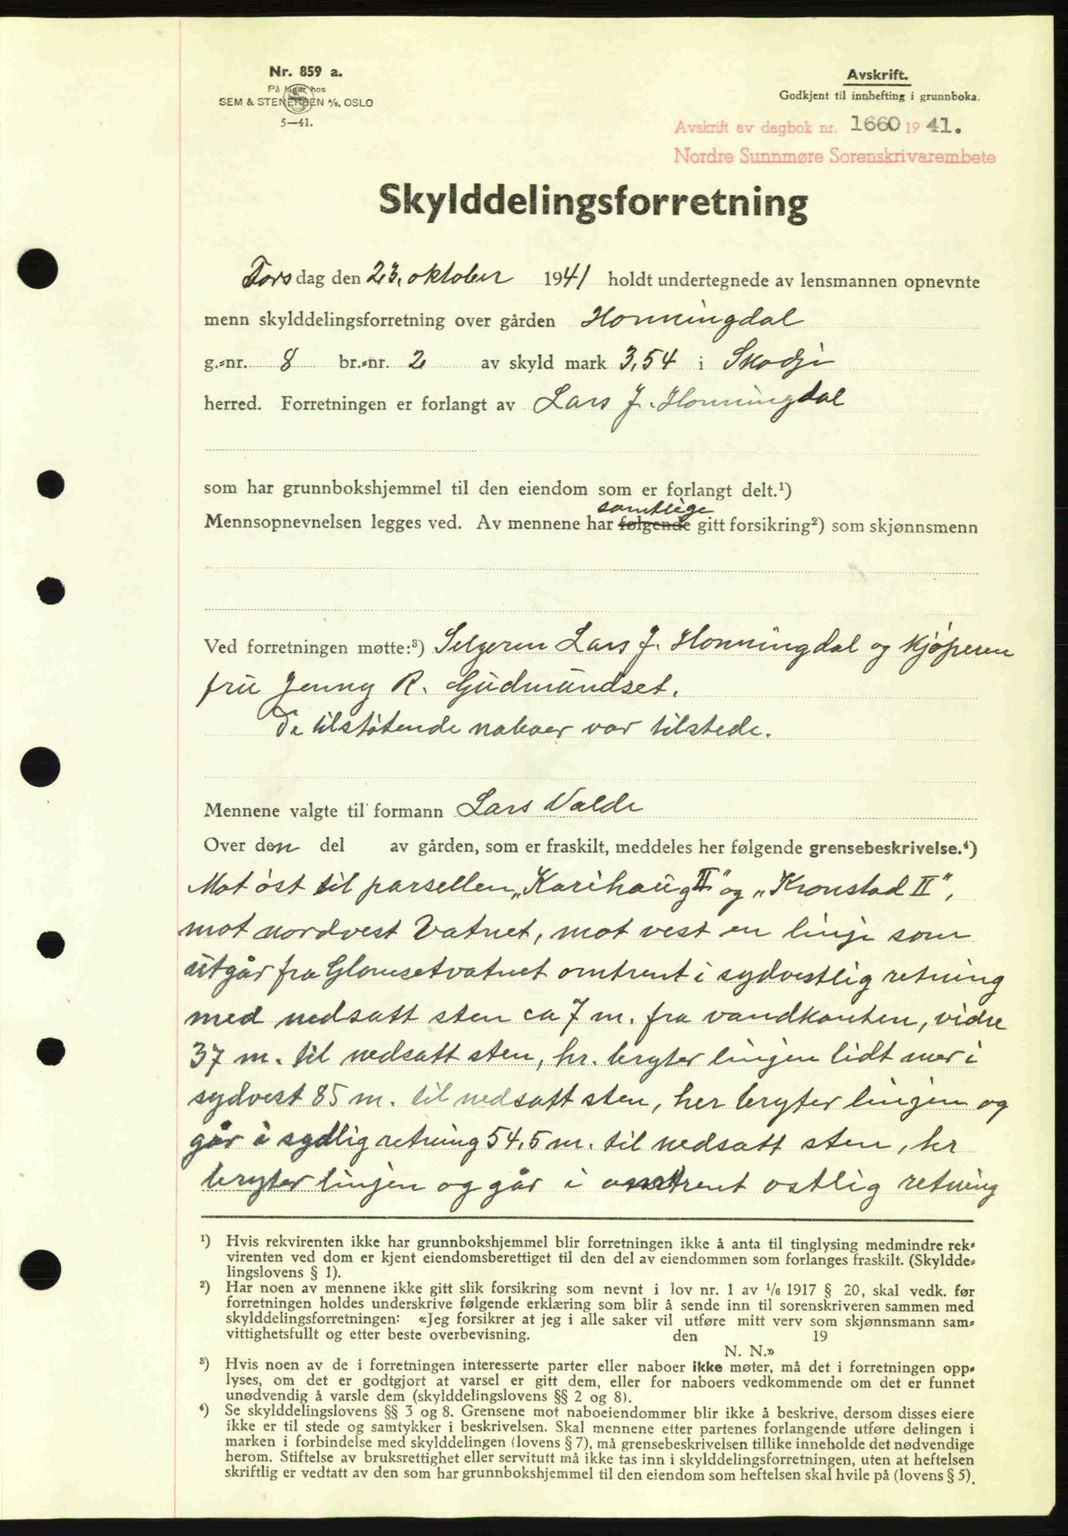 Nr. 859 a.
På lager hos
SEM & STENERSEN A/S, OSLO
5—41.
Avskrift.
Godkjent til innhefting i grunnboka.
Avskrift av dagbok nr. 1660 19 41.
Nordre Sunnmøre Sorenskrivarembete
Skylddelingsforretning
Torsdag den 23. oktober 1941 holdt undertegnede av lensmannen opnevnte
menn skylddelingsforretning over gården Honningdal
g.-nr. 8 br.-nr. 2 av skyld mark 3,54 i Skodje
herred. Forretningen er forlangt av Lars J. Honningdal
som har grunnbokshjemmel til den eiendom som er forlangt delt.¹)
samtlige
Mennsopnevnelsen legges ved. Av mennene har følgende gitt forsikring²) som skjønnsmenn
Ved forretningen møtte:³) Selgeren Lars J. Honningdal og kjøperen
fru Jenny R. Gudmundset.
De tilstøtende naboer var tilstede.
Mennene valgte til formann Lars Valde
Over den del av gården, som er fraskilt, meddeles her følgende grensebeskrivelse.⁴)
Mot øst til parsellen „Karihaug II" og „Kronstad II",
mot nordvest Vatnet, mot vest en linje som
utgår fra Glomsetvatnet omtrent i sydvestlig retning
med nedsatt sten ca 7 m. fra vandkanten, vidre
37 m. til nedsatt sten, hr. bryter linjen lidt mer i
sydvest 85 m. til nedsatt sten, her bryter linjen og
går i sydlig retning 54,5 m. til nedsatt sten, hr
bryter linjen og går i omtrent ostlig retning
¹) Hvis rekvirenten ikke har grunnbokshjemmel blir forretningen ikke å anta til tinglysing medmindre rek-
virenten ved dom er kjent eiendomsberettiget til den del av eiendommen som forlanges fraskilt. (Skyldde-
lingslovens § 1).
²) Har noen av mennene ikke gitt slik forsikring som nevnt i lov nr. 1 av 1/6 1917 § 20, skal vedk. før
forretningen holdes underskrive følgende erklæring som blir å sende inn til sorenskriveren sammen med
skylddelingsforretningen: «Jeg forsikrer at jeg i alle saker vil utføre mitt verv som skjønnsmann sam-
vittighetsfullt og etter beste overbevisning. den 19
N. N.»
³) Hvis noen av de i forretningen interesserte parter eller naboer ikke møter, må det i forretningen opp-
lyses, om det er godtgjort at varsel er gitt dem, eller for naboers vedkommende om det er funnet
unødvendig å varsle dem (skylddelingslovens §§ 2 og 8).
⁴) Se skylddelingslovens §§ 3 og 8. Grensene mot naboeiendommer blir ikke å beskrive, dersom disses eiere
ikke er til stede og samtykker i beskrivelsen. Skal mennene etter partenes forlangende utføre delingen i
marken i forbindelse med skylddelingen (lovens § 7), må grensebeskrivelsen tillike inneholde det nødvendige
herom. Stiftelse av bruksrettighet eller servitutt må ikke tas inn i skylddelingsforretningen, uten at heftelsen
skriftlig er vedtatt av den som har grunnbokshjemmel til den eiendom som heftelsen skal hvile på (lovens § 5).